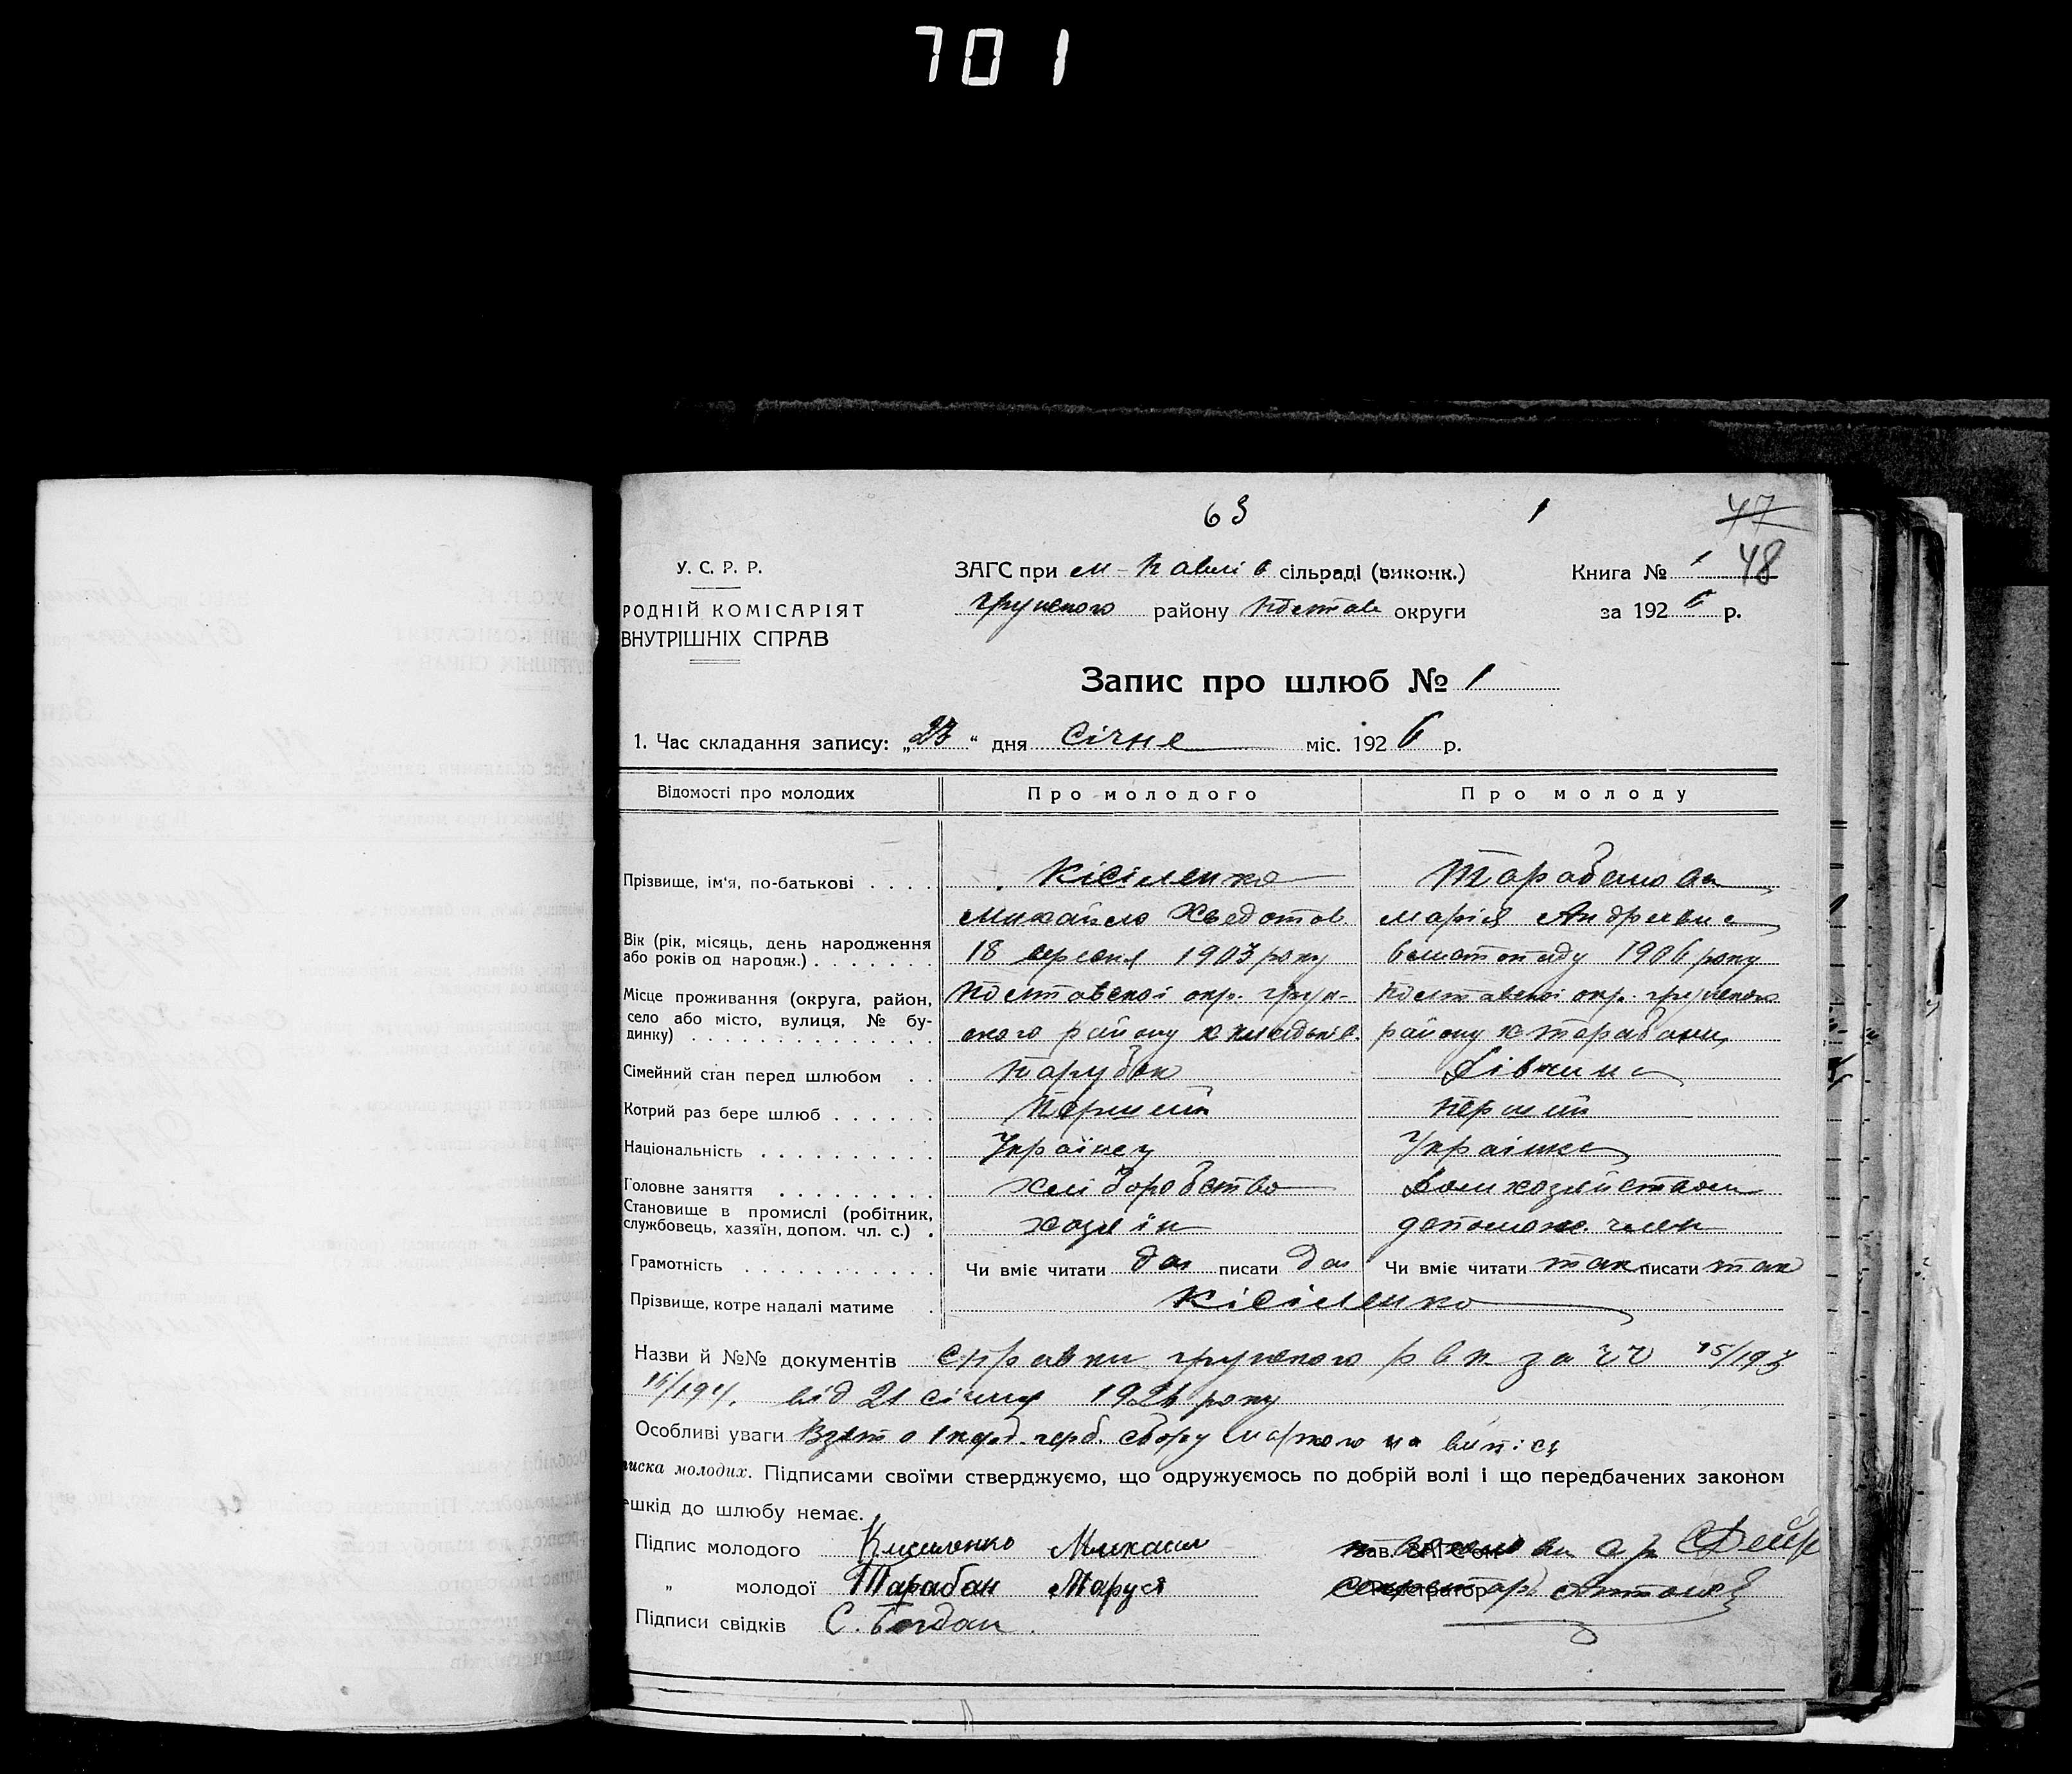 701
63 1 47
У. С. Р. Р. ЗАГС при м-Павлів сільраді (виконк.) Книга № 1 48
РОДНІЙ КОМІСАРІЯТ грунського району Полтав округи за 1926 р.
ВНУТРІШНІХ СПРАВ
Запис про шлюб № 1
1. Час складання запису: „23“ дня Січня міс. 1926 р.
Відомості про молодих Про молодого Про молоду
Прізвище, ім'я, по-батькові . . . . Кісіленко Тарабанова
Михайло Хведотов Марія Андріівна
Вік (рік, місяць, день народження
або років од народж.) . . . . . . . 18 вересня 1903 року 6 листопаду 1906 року
Місце проживання (округа, район, Полтавськоі окр. грун- Полтавськоі окр. грунського
село або місто, вулиця, № бу-
динку) . . . . . . . . . . . . . . ського району х району х Тарабани
Сімейний стан перед шлюбом . . Парубок Дівчина
Котрий раз бере шлюб . . . . . . Перший перший
Національність . . . . . . . . . . Українец Украінка
Головне заняття . . . . . . . . . хліборобство домхозяйством
Становище в промислі (робітник,
службовець, хазяїн, допом. чл. с.) . хазяїн допомож. член
Грамотність . . . . . . . . . . . Чи вміє читати да писати да Чи вміє читати так писати так
Прізвище, котре надалі матиме . Кісіленко
Назви й №№ документів Справки грунського рвк за чч 15/193
15/194. від 21 січня 1926 року
Особливі уваги Взято 1 герб. збору маркою на випісц
писка молодих. Підписами своїми стверджуємо, що одружуємось по добрій волі і що передбачених законом
ешкід до шлюбу немає.
Підпис молодого Кисиленко Михаил Зав. ЗАГС'ом
„ молодої Тарабан Маруся Реєстратор
Підписи свідків С. Богдан